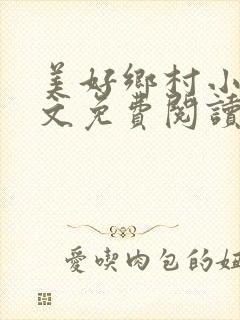 美好鄉村小
文免費閱讀
愛喫肉包的妞